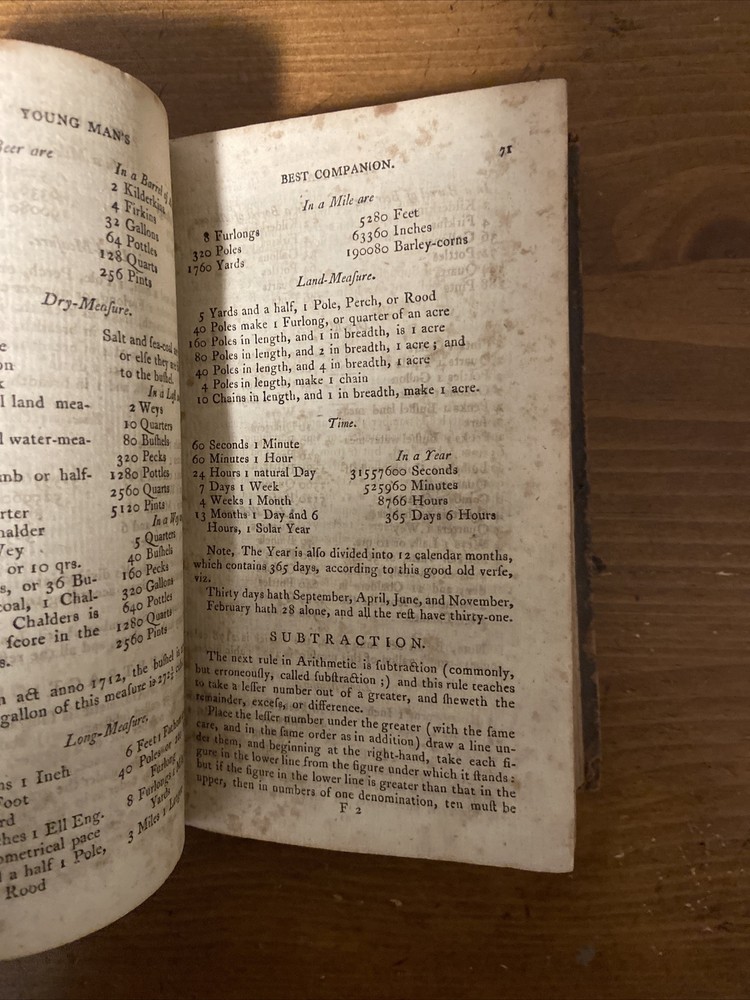 YOUNG MAN'S
Beer are
In a Barrel of
2 Kilderkins
4 Firkins
32 Gallons
64 Pottles
128 Quarts
256 Pints
Dry-Meaſure.
Salt and ſea-coal
or elſe they
to the buſhel.
In a Laſt
l land mea-
2 Weys
10 Quarters
l water-mea-
80 Buſhels
320 Pecks
mb or half-
1280 Pottles
2560 Quarts
5120 Pints
rter
In a Wey
halder
5 Quarters
Vey
40 Buſhels
or 10 qrs.
160 Pecks
s, or 36 Bu-
320 Gallons
coal, 1 Chal-
640 Pottles
Chalders is
1280 Quarts
ſcore in the
2560 Pints
s.
n act anno 1712, the buſhel
gallon of this meaſure is 272¼
Long-Meaſure.
6 Feet 1 Fathom
ns 1 Inch
40 Poles
Foot
Furlong
rd
8 Furlongs 1
hes 1 Ell Eng.
Yards
ometrical pace
3 Miles 1
d a half 1 Pole,
Rood
BEST COMPANION. 71
In a Mile are
8 Furlongs 5280 Feet
320 Poles 63360 Inches
1760 Yards 190080 Barley-corns
Land-Meaſure.
5 Yards and a half, 1 Pole, Perch, or Rood
40 Poles make 1 Furlong, or quarter of an acre
160 Poles in length, and 1 in breadth, is 1 acre
80 Poles in length, and 2 in breadth, 1 acre; and
40 Poles in length, and 4 in breadth, 1 acre
4 Poles in length, make 1 chain
10 Chains in length, and 1 in breadth, make 1 acre.
Time.
60 Seconds 1 Minute
60 Minutes 1 Hour In a Year
24 Hours 1 natural Day 31557600 Seconds
7 Days 1 Week 525960 Minutes
4 Weeks 1 Month 8766 Hours
13 Months 1 Day and 6 365 Days 6 Hours
Hours, 1 Solar Year
Note, The Year is alſo divided into 12 calendar months,
which contains 365 days, according to this good old verſe,
viz.
Thirty days hath September, April, June, and November,
February hath 28 alone, and all the reſt have thirty-one.
SUBTRACTION.
The next rule in Arithmetic is ſubtraction (commonly,
but erroneouſly, called ſubſtraction;) and this rule teaches
to take a leſſer number out of a greater, and ſheweth the
remainder, exceſs, or difference.
Place the leſſer number under the greater (with the ſame
care, and in the ſame order as in addition) draw a line un-
der them, and beginning at the right-hand, take each fi-
gure in the lower line from the figure under which it ſtands:
but if the figure in the lower line is greater than that in the
upper, then in numbers of one denomination, ten muſt be
F 2